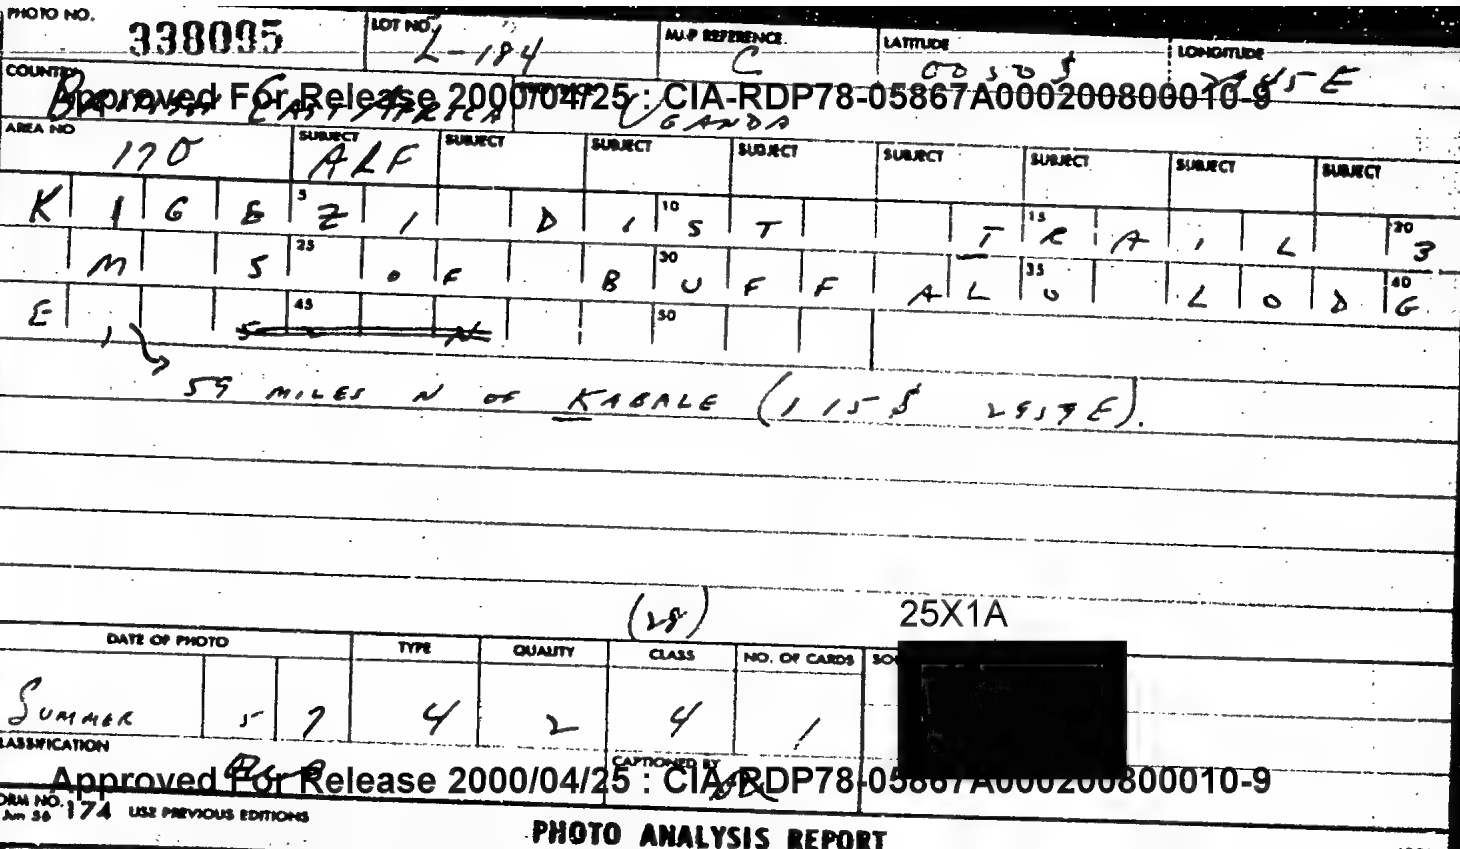 PHOTO NO. 338095 LOT NO. L-184 MAP REFERENCE C LATITUDE 00 30 S LONGITUDE 45 E
COUNTRY BRITISH EAST AFRICA UGANDA
Approved For Release 2000/04/25 : CIA-RDP78-05867A000200800010-9
AREA NO 170 SUBJECT ALF SUBJECT SUBJECT SUBJECT SUBJECT SUBJECT SUBJECT SUBJECT
K I G E 5 Z I D I 10 S T T 15 R A I L 20 3
M S 25 O F B 30 U F F A L 35 O L O D 40 G
E , 45 50
59 MILES N OF KABALE (1 15 S 2959E).
(28) 25X1A
DATE OF PHOTO TYPE QUALITY CLASS NO. OF CARDS
SUMMER 57 4 2 4 1
CLASSIFICATION CAPTIONED BY
Approved For Release 2000/04/25 : CIA-RDP78-05867A000200800010-9
FORM NO. 174 USE PREVIOUS EDITIONS
Jun 56
PHOTO ANALYSIS REPORT